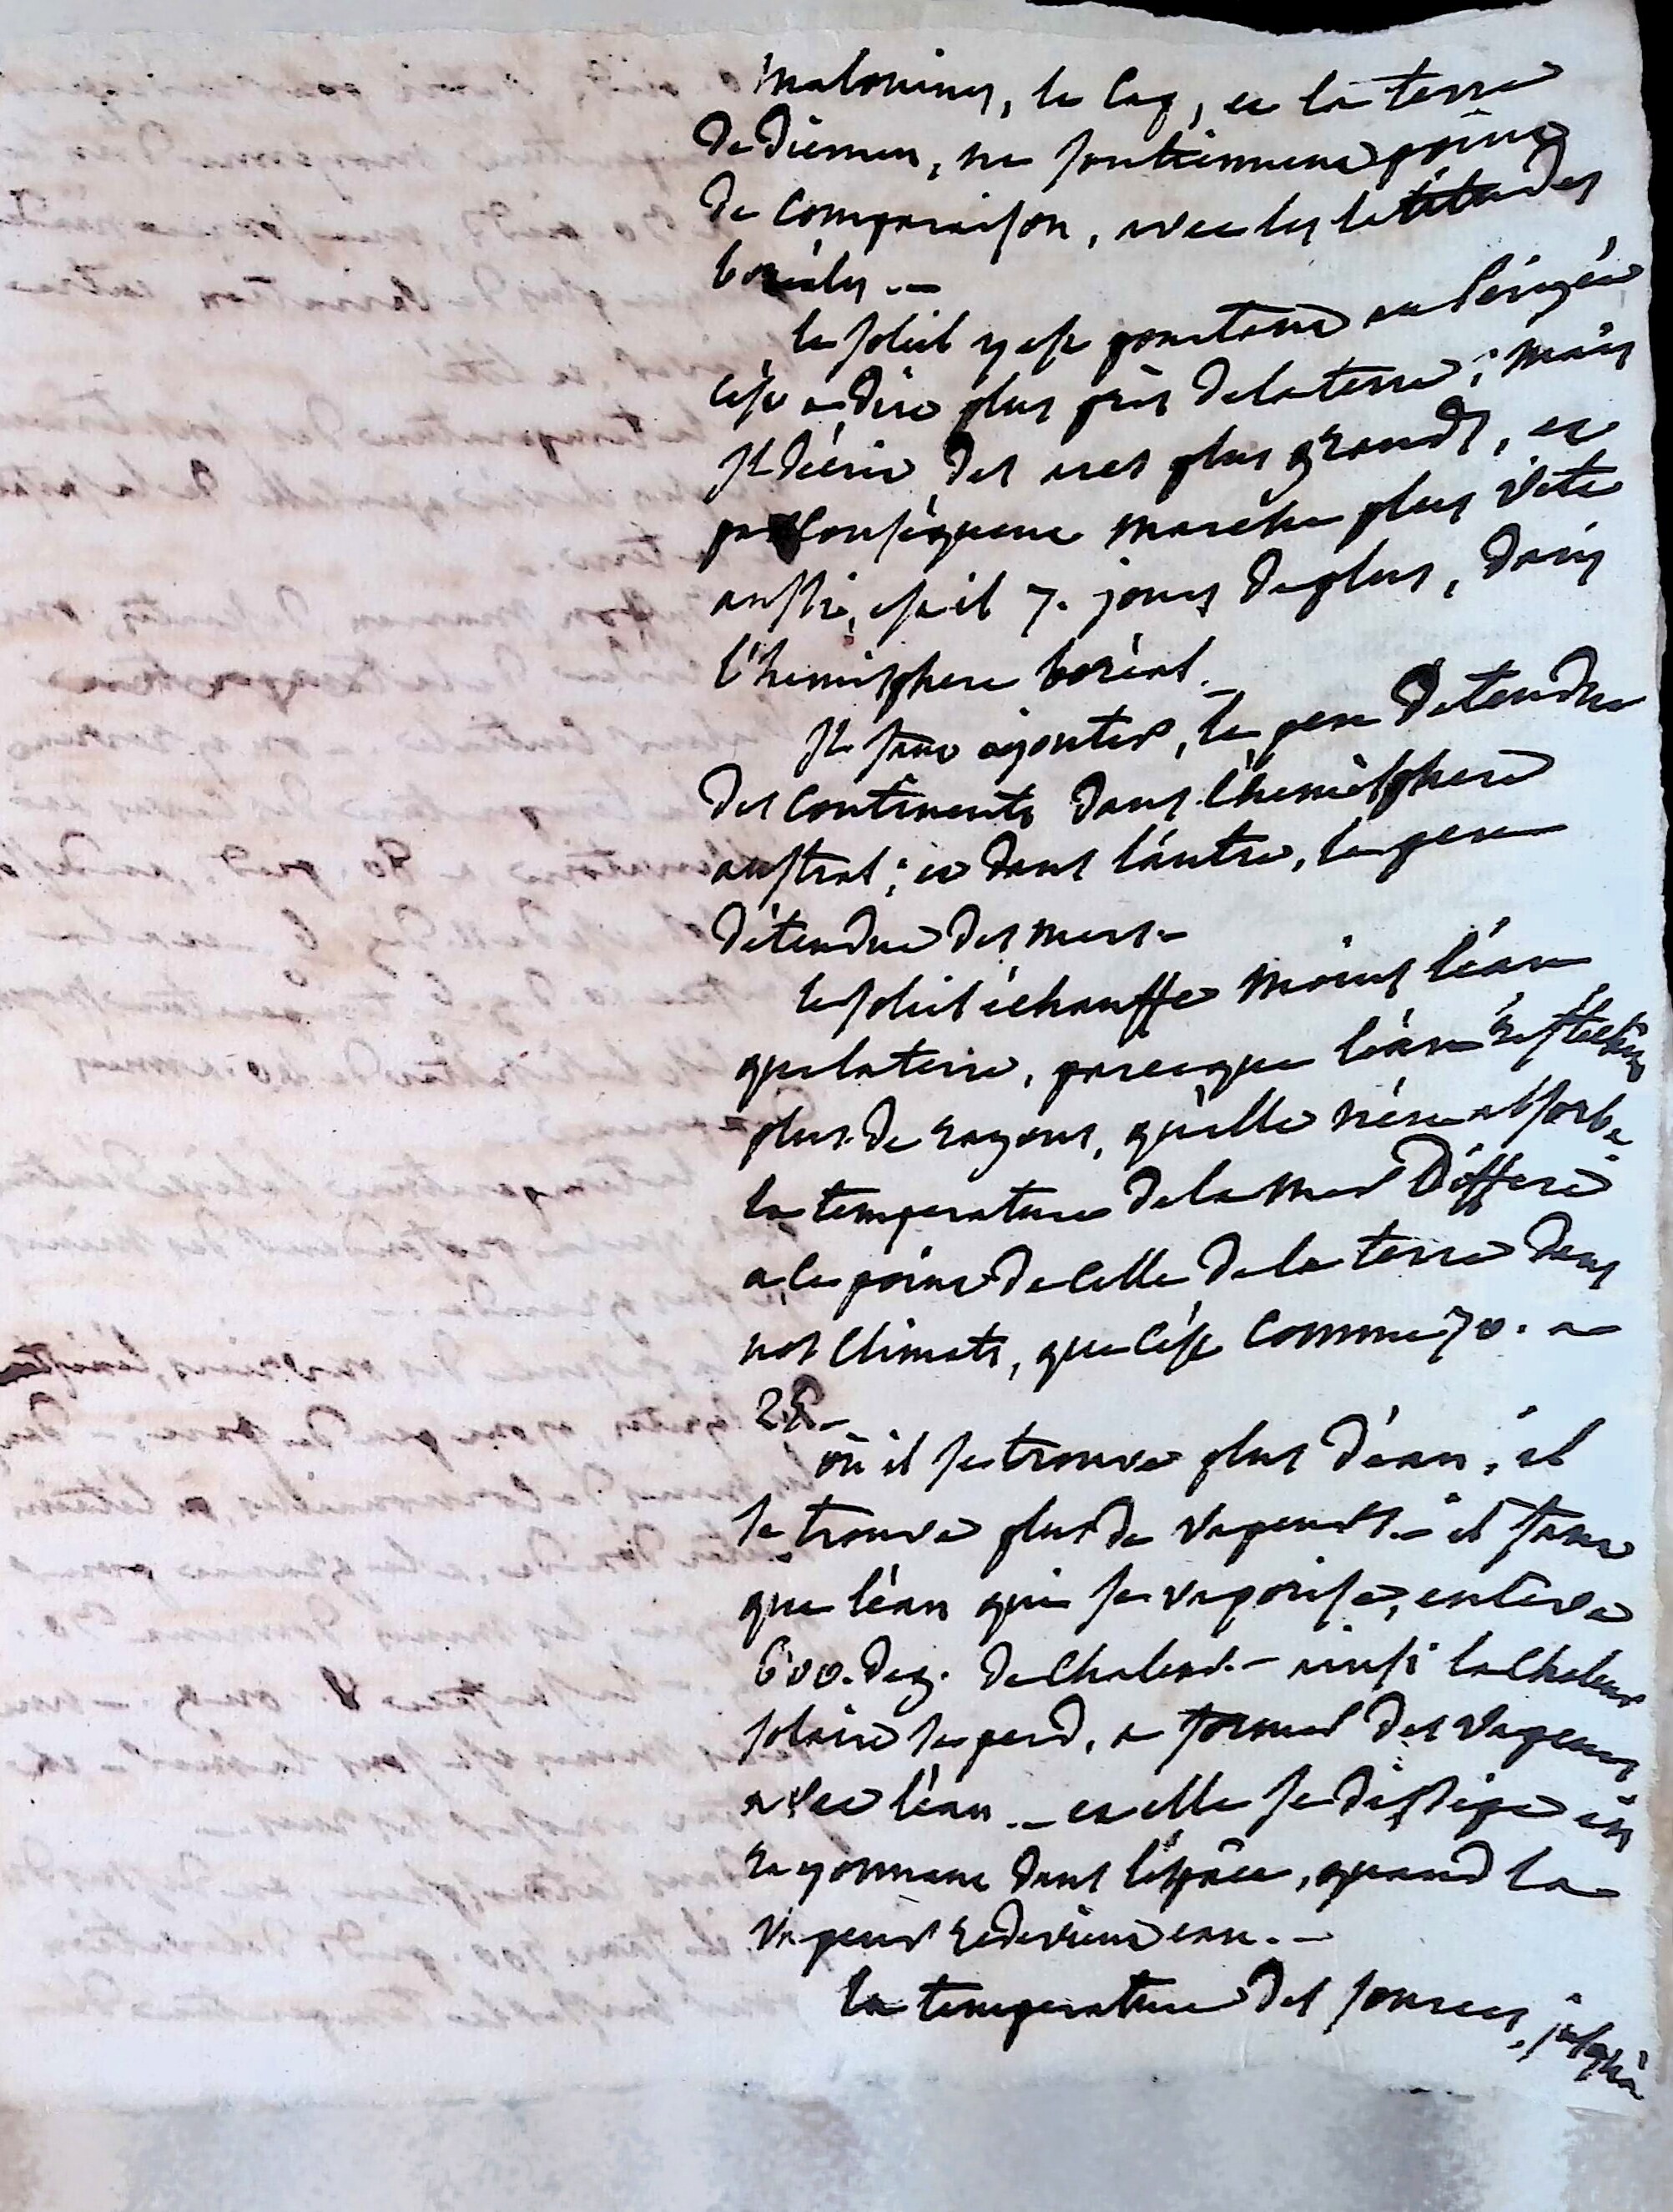 malouines, le Cap, et la terre
de diemen, ne soutiennent point
de comparaison, avec les latitudes
boréales. —
le soleil y est pourtant au périgée
c'est a dire plus près de la terre; mais
Il décrit des arcs plus grands, et
par conséquent marche plus vite
aussi, est il 7. jours de plus, dans
l'hemisphere boréal. —
Il faut ajouter, le peu detendue
des continents dans l'hemisphere
austral; et dans l'autre, le peu
d'étendue des mers —
le soleil échauffe moins l'eau
que la terre, parceque l'eau
plus de rayons, qu'elle n'en absorbe
la temperature de la mer differe
a ce point de celle de la terre dans
nos climats, que c'est comme 70. a
28 —
où il se trouve plus d'eau, il
se trouve plus de vapeurs. — il faut
que l'eau qui se vaporise, enleve
600. deg. de chaleur. — ainsi la chaleur
solaire se perd, a former des vapeurs
avec l'eau — et elle se dissipe en
rayonnant dans l'espace, quand la
vapeur redevient eau. —
la temperature des sources, jusqu'à